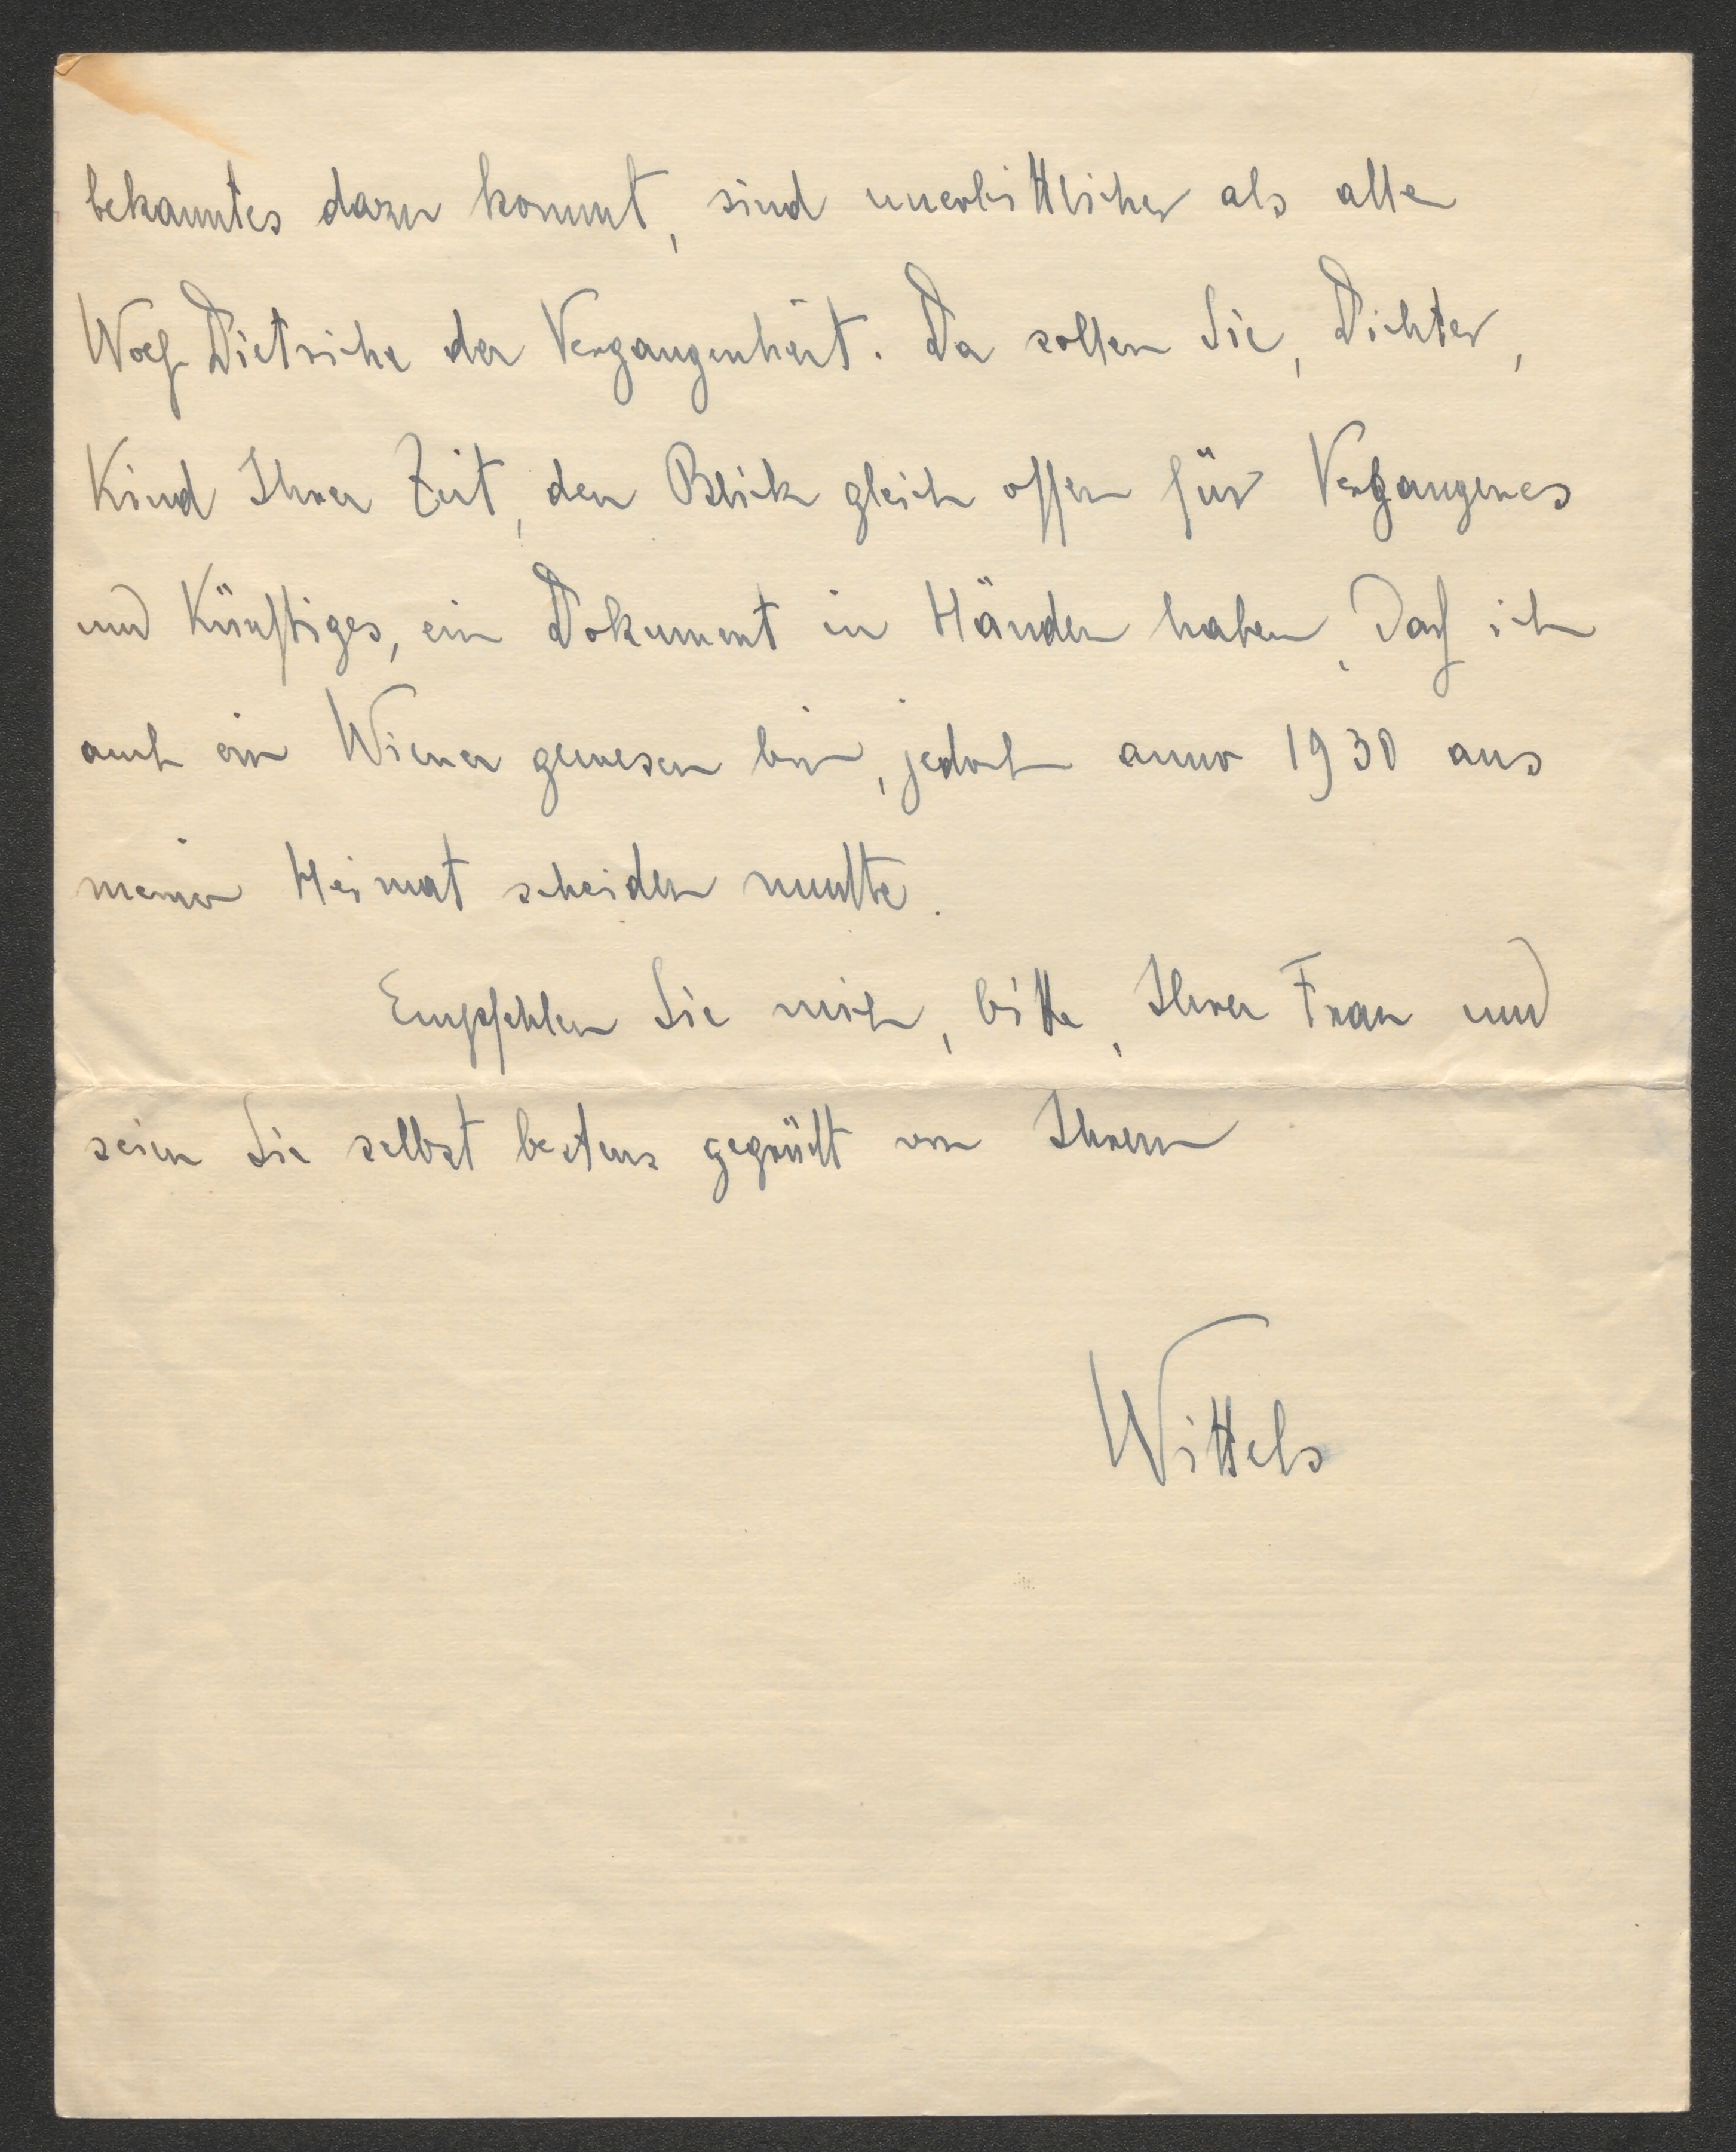 bekanntes dazu kommt, sind unerbittlicher als alle
Wolf Dietriche der Vergangenheit. Da sollen Sie, Dichter,
Kind Ihrer Zeit, den Blick gleich offen für Vergangenes
und Künftiges, ein Dokument in Händen haben, daß ich
auch ein Wiener gewesen bin, jedoch anno 1930 aus
meiner Heimat scheiden mußte.
Empfehlen Sie mich, bitte, Ihrer Frau und
seien Sie selbst bestens gegrüßt von Ihrem
Wittels